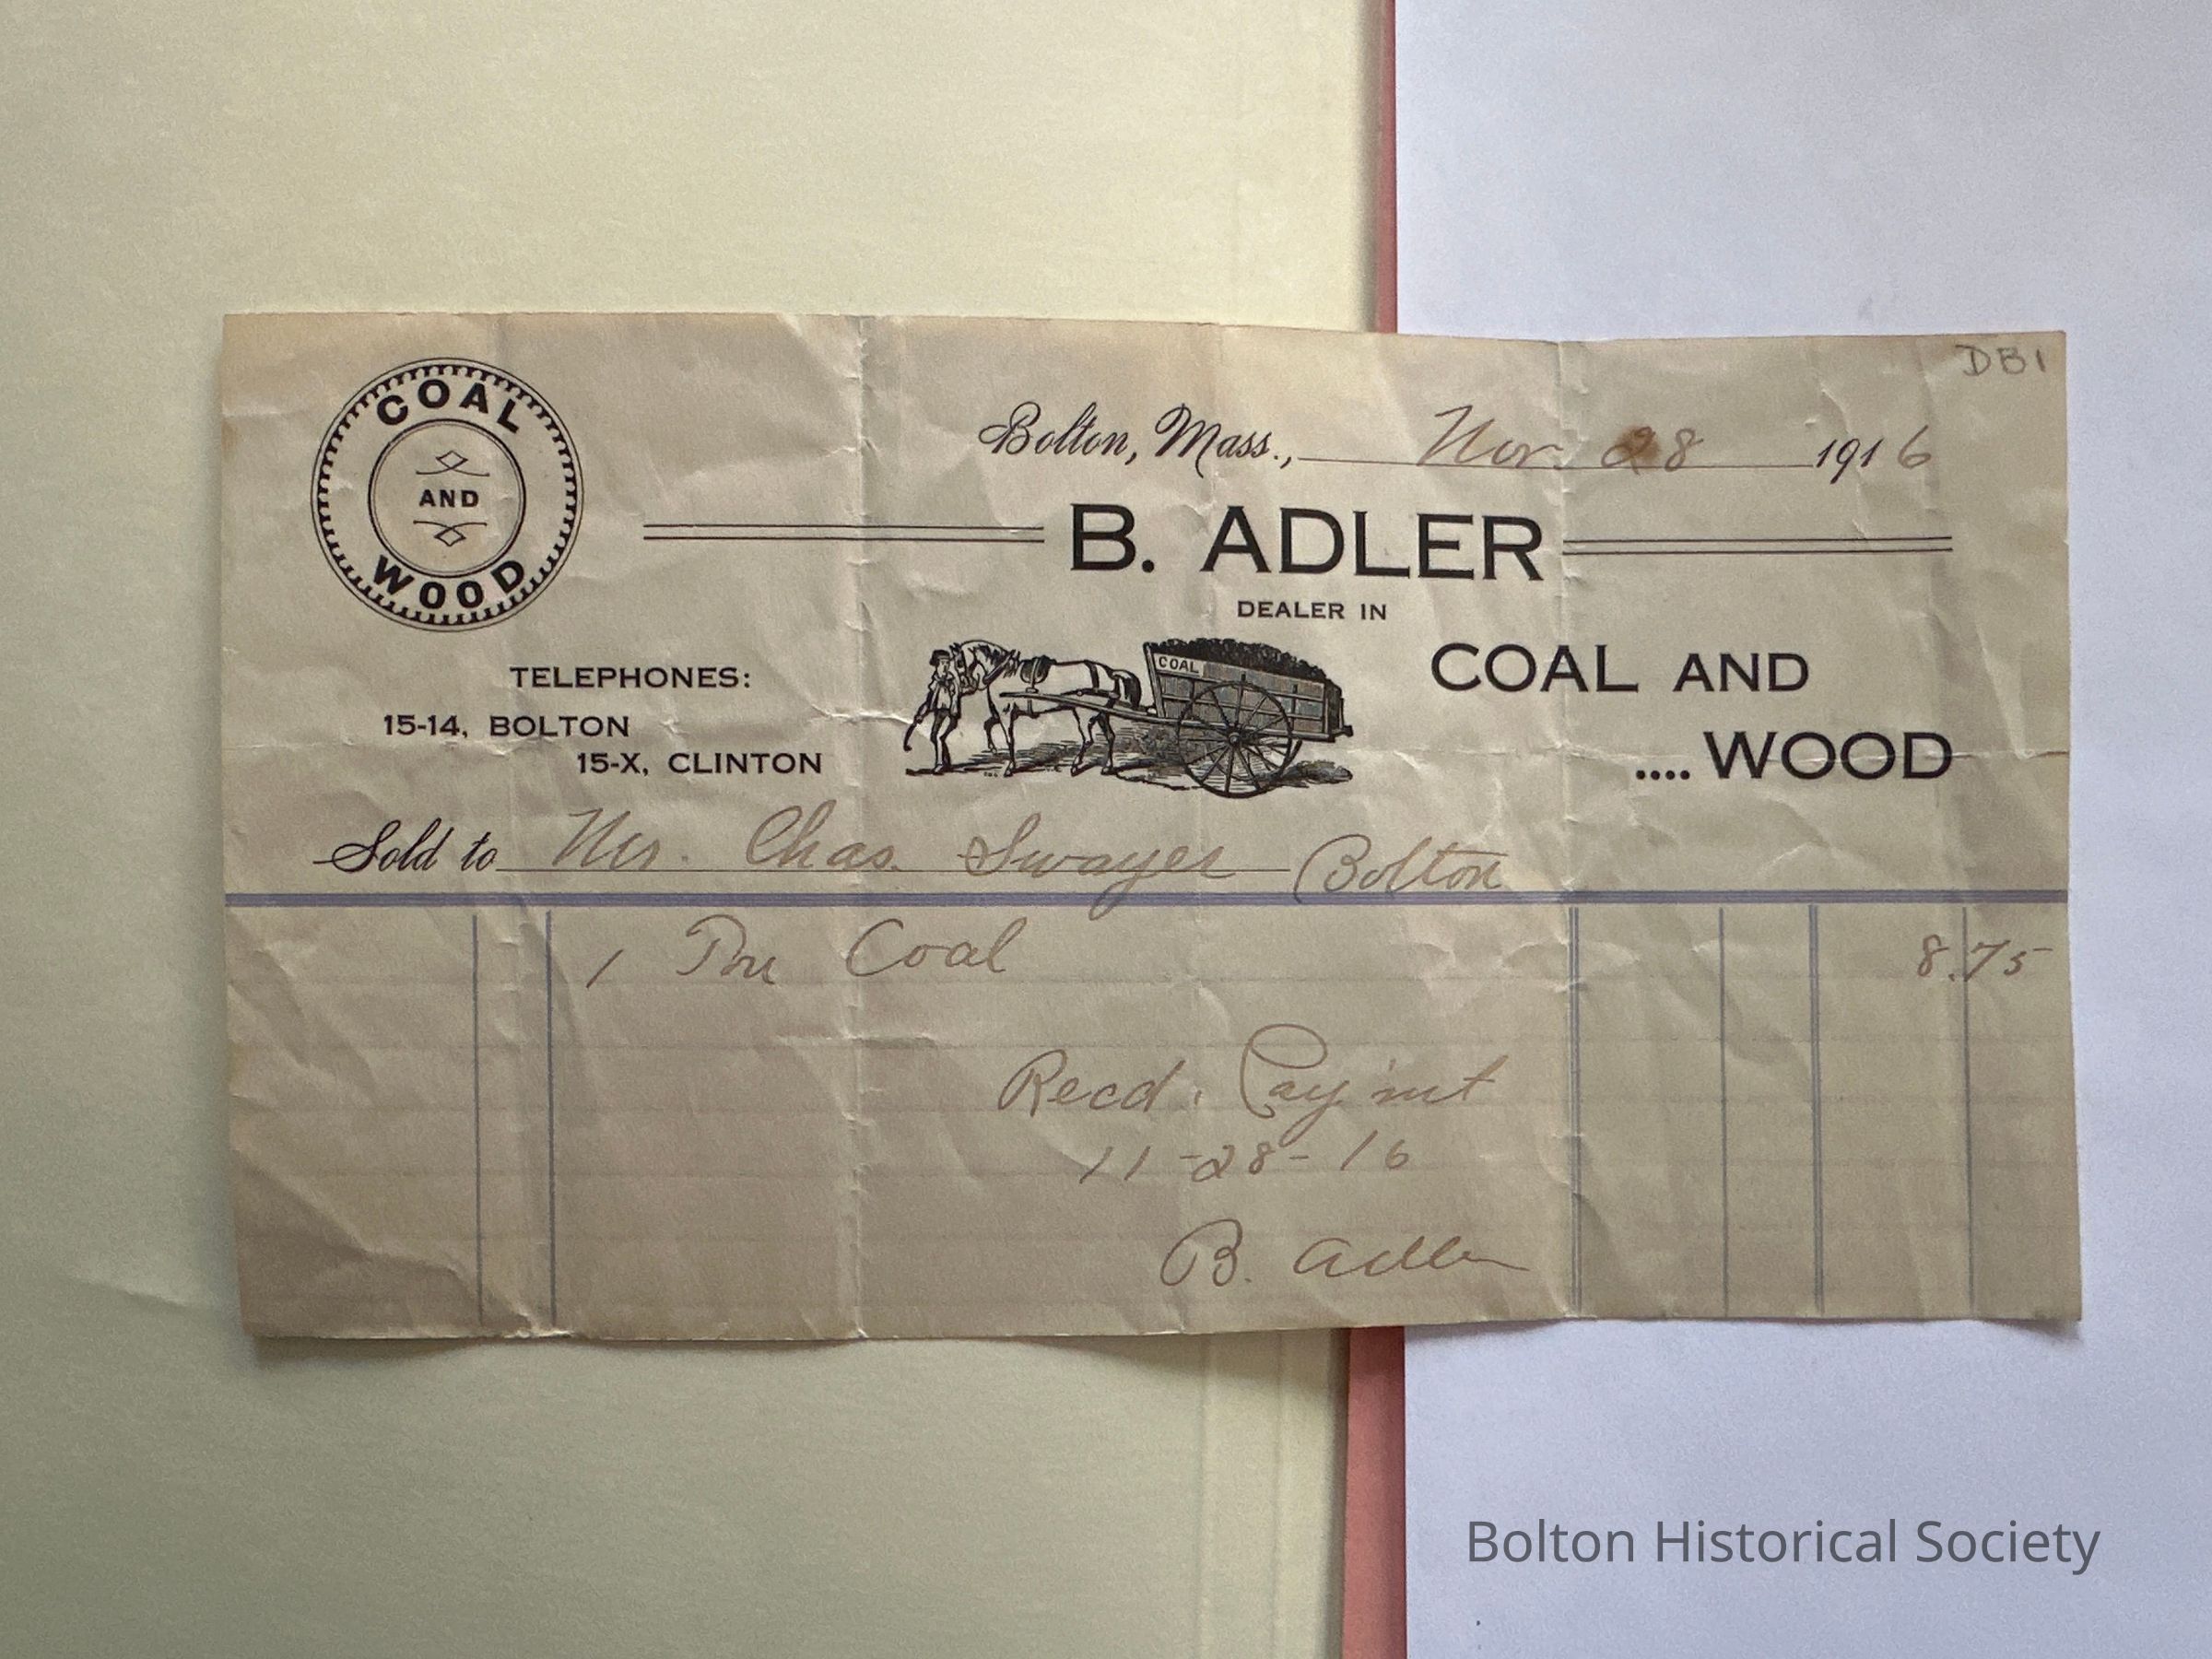 DB1
COAL
AND
WOOD
Bolton, Mass., Nov. 28 1916
B. ADLER
DEALER IN
COAL AND
.... WOOD
COAL
TELEPHONES:
15-14, BOLTON
15-X, CLINTON
Sold to Mr. Chas. Swayer Bolton
1 Ton Coal 8.75
Recd. Paym't
11-28-16
B. Adler
Bolton Historical Society